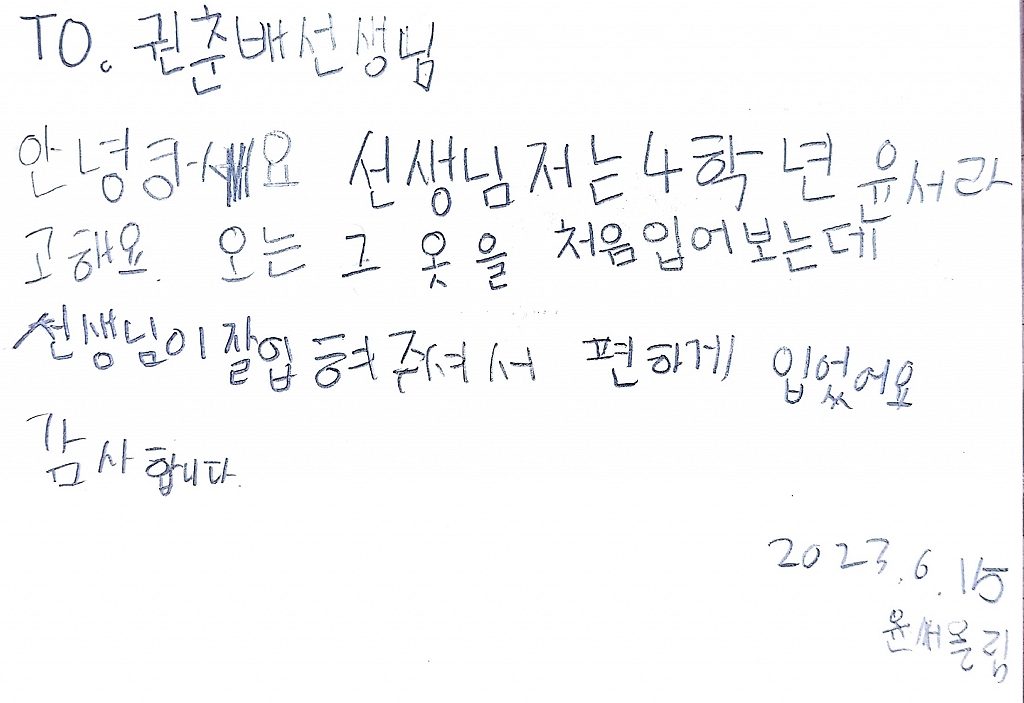 TO. 권춘배선생님
안녕하세요 선생님저는4학년 윤서라
고해요. 오는 그 옷을 처음입어보는데
선생님이잘입혀주셔서 편하게 입었어요
감사합니다.
2023.6.15
윤서올림